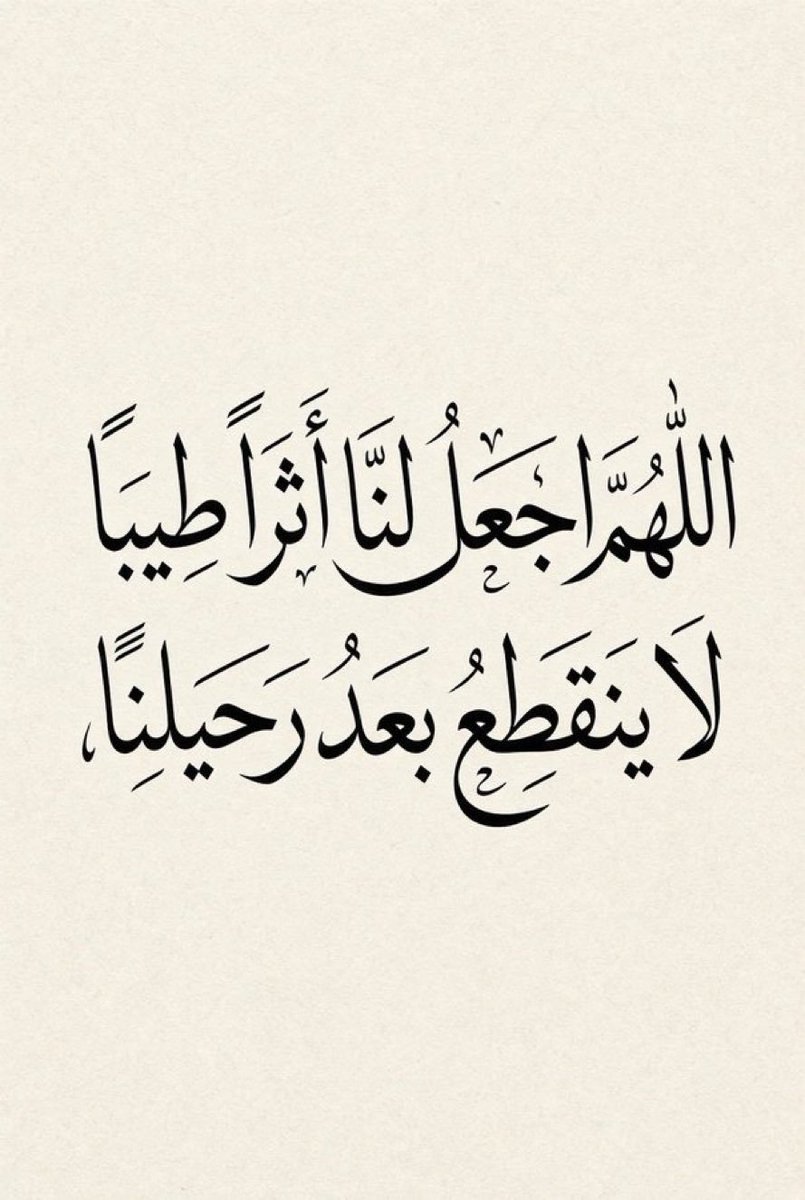 اللّٰهُمَّ اجَعَلُ لنَّا أَثَراً طِيبَاً
لَا يَنَقَطِعُ بعَدُ رَحَيلنِاً